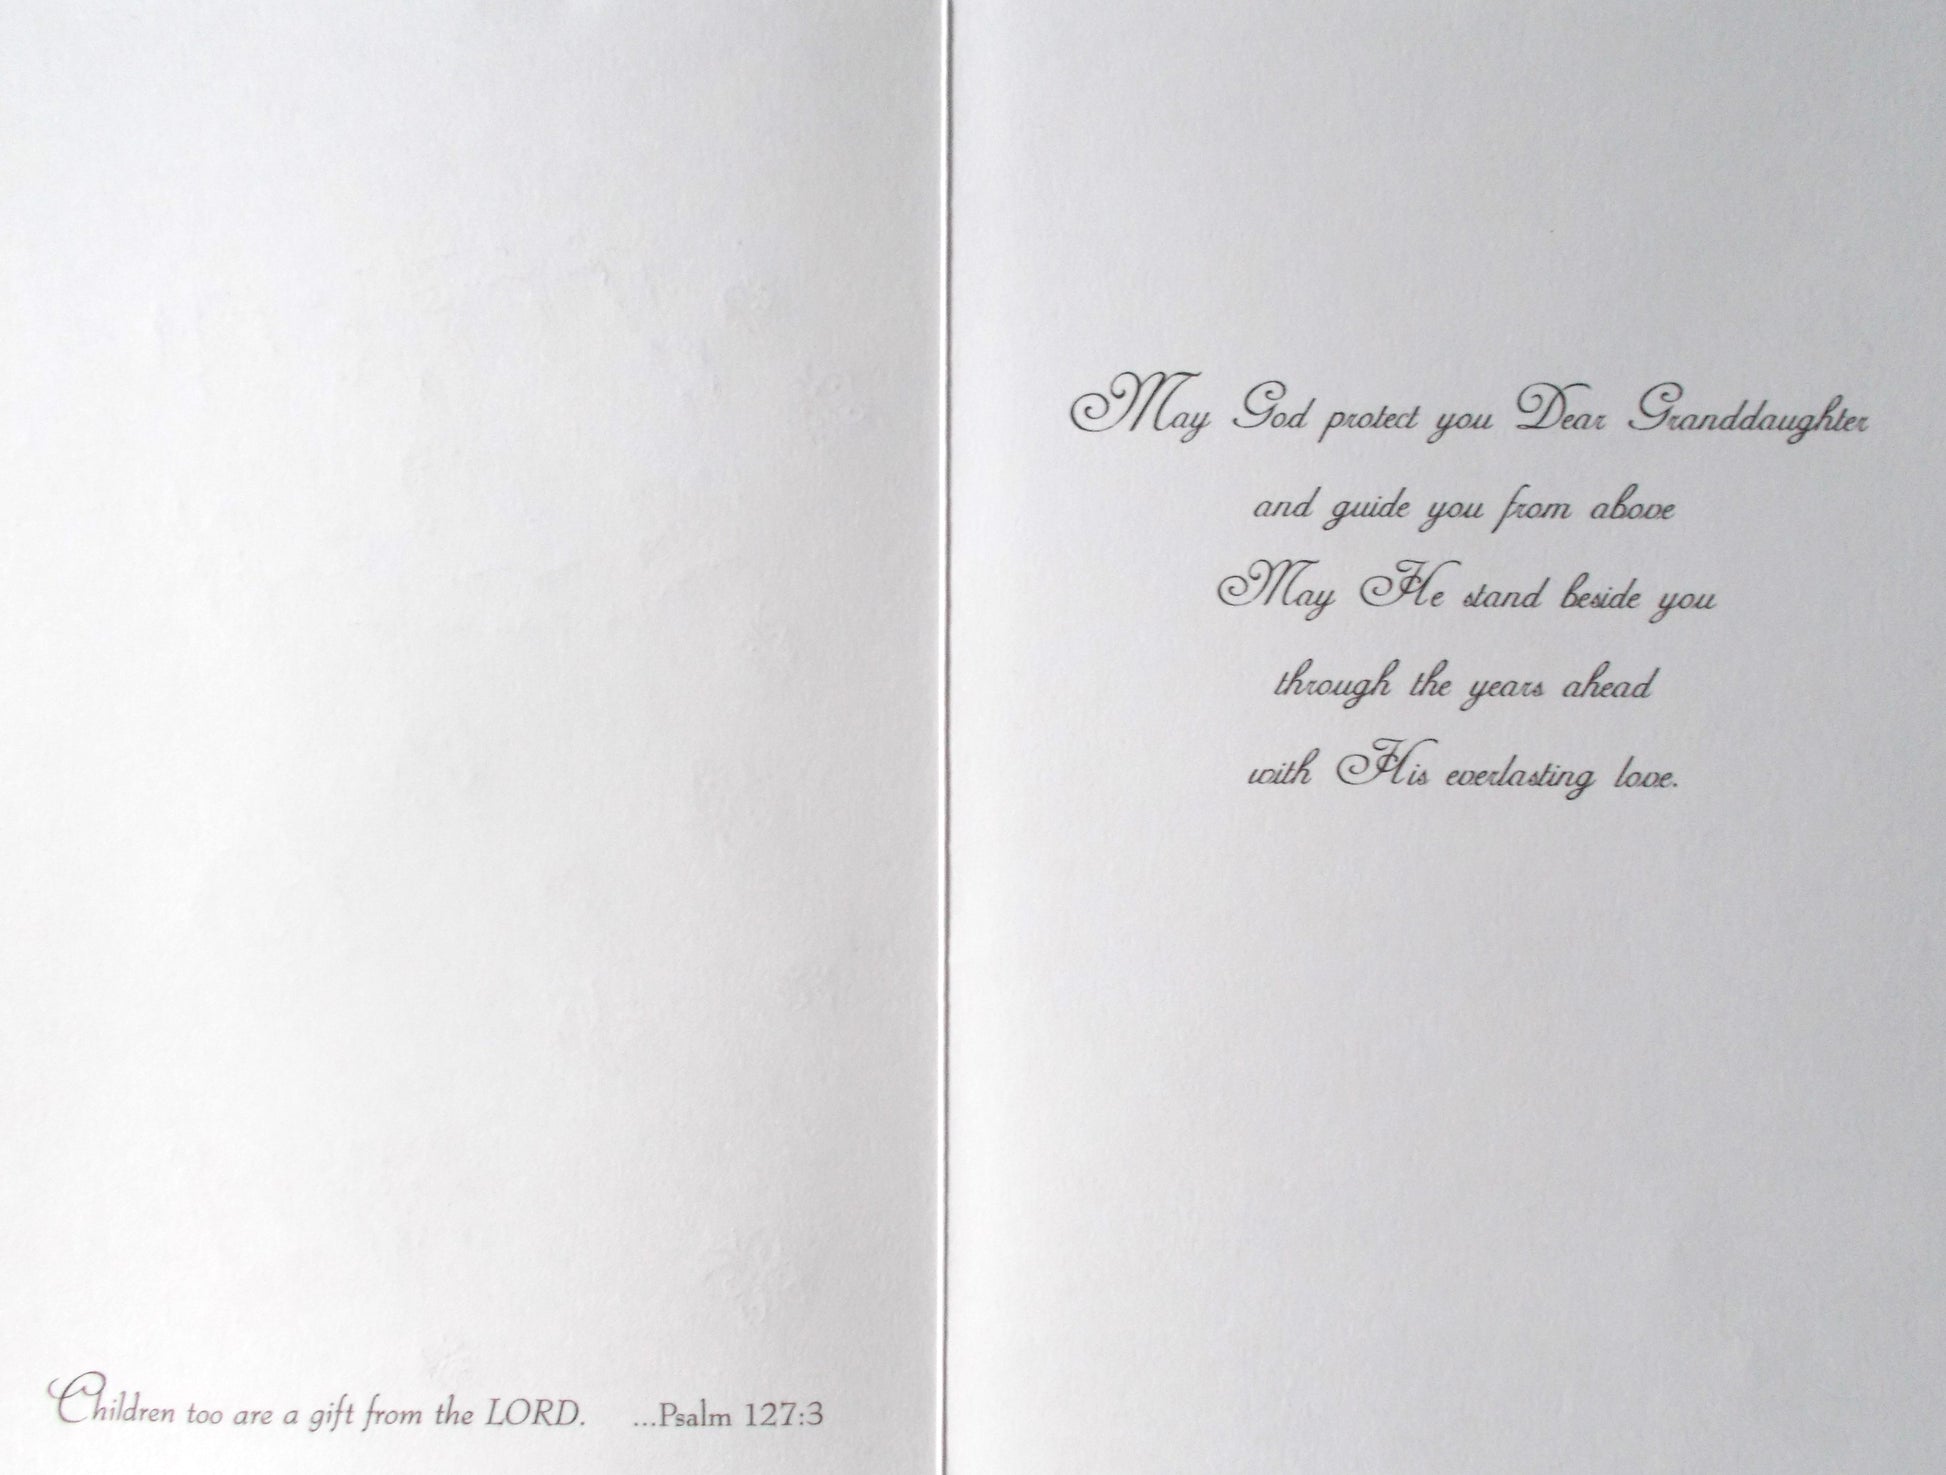 Children too are a gift from the LORD. ...Psalm 127:3
May God protect you Dear Granddaughter
and guide you from above
May He stand beside you
through the years ahead
with His everlasting love.